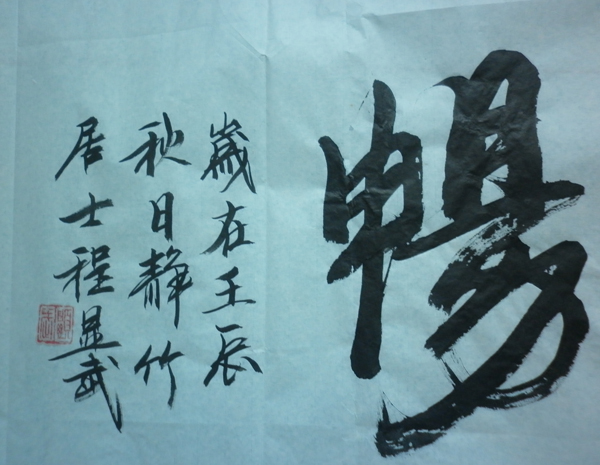 暢
歲在壬辰
秋日静竹
居士程显武